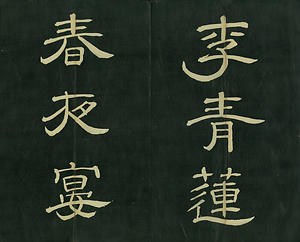 李青蓮
春夜宴